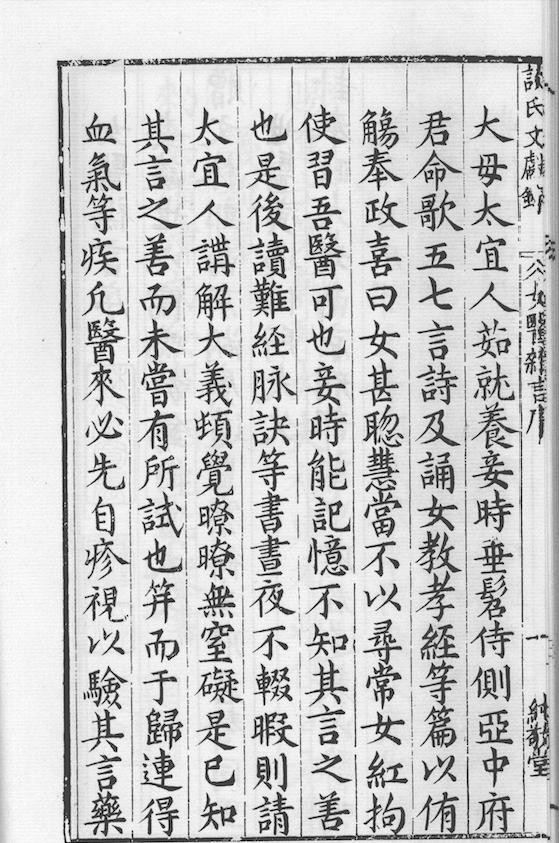 談氏文獻錄
女醫雜言序
一
純敬堂
大母太宜人茹就養妾時垂髫侍側亞中府
君命歌五七言詩及誦女教孝經等篇以侑
觴奉政喜曰女甚聦慧當不以尋常女紅拘
使習吾醫可也妾時能記憶不知其言之善
也是後讀難經脉訣等書晝夜不輟暇則請
太宜人講解大義頓覺暸暸無窒礙是已知
其言之善而未嘗有所試也笄而于歸連得
血氣等疾凡醫來必先自疹視以驗其言藥